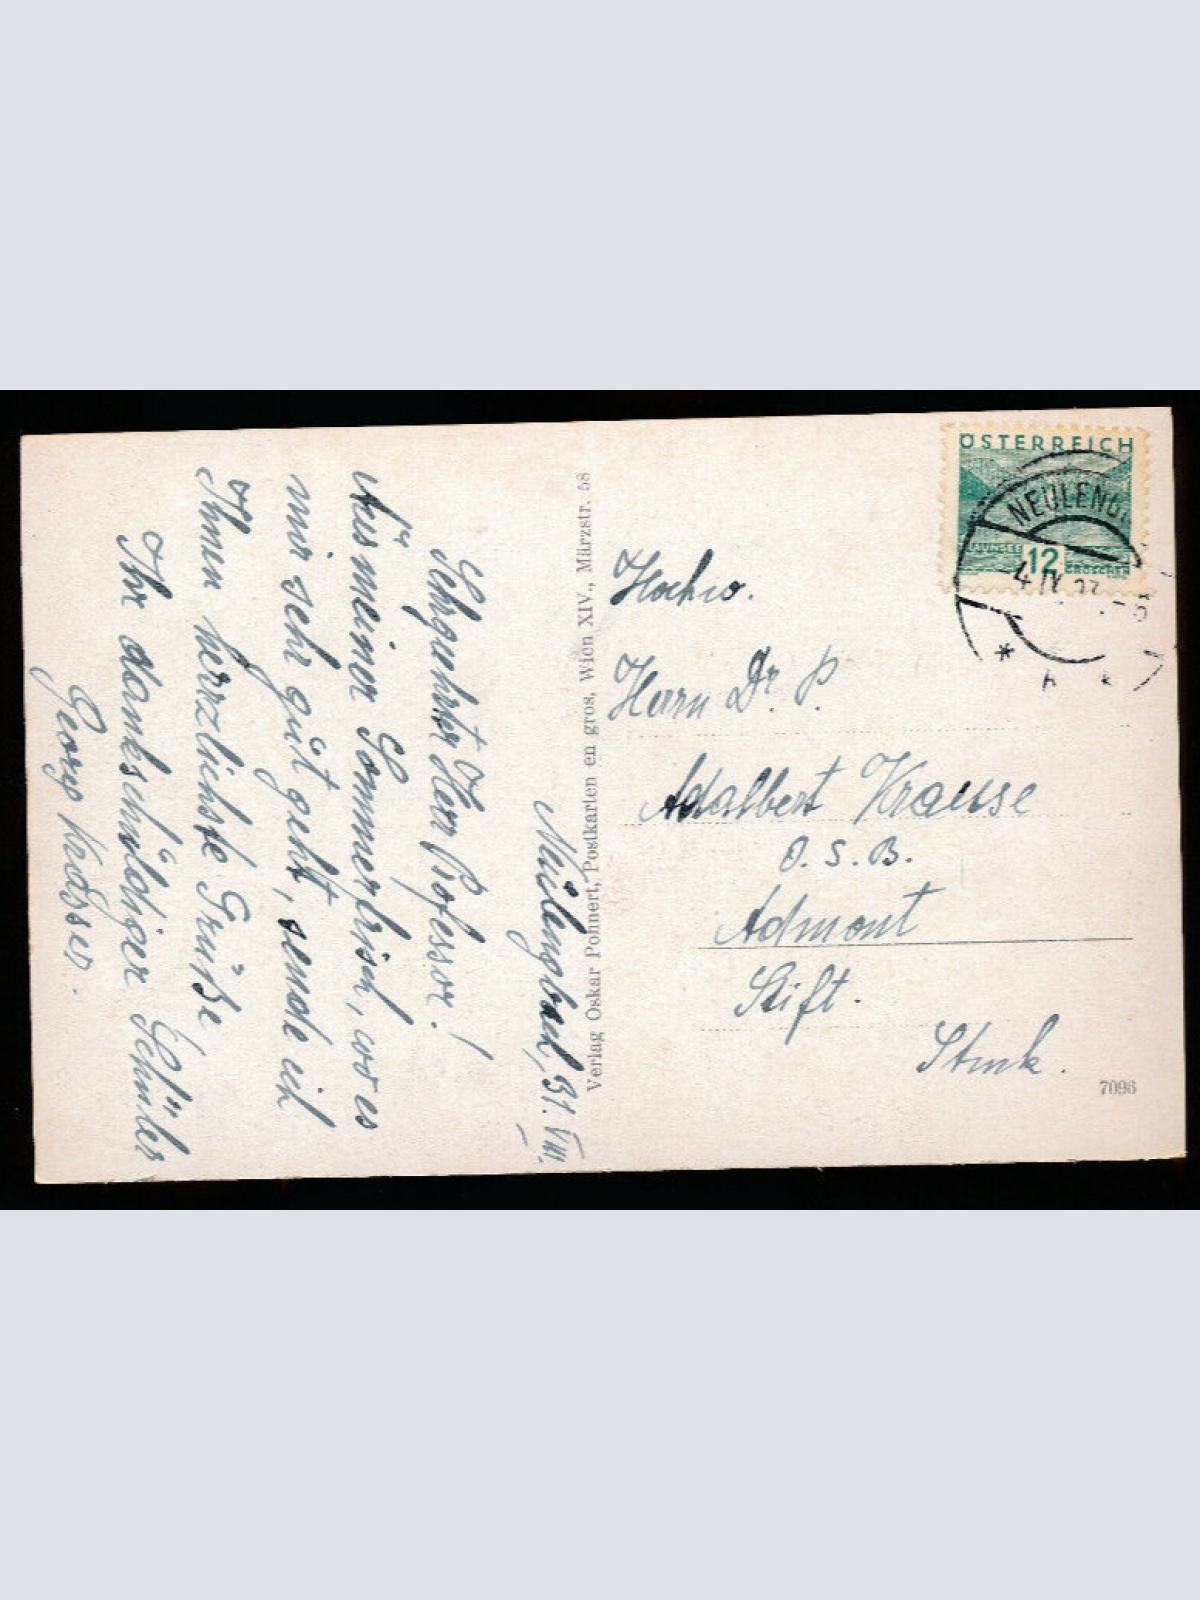 Neulengbach, 31. VIII.
Sehrgeehrter Herr Professor!
Aus meiner Sommerfrisch, wo es
mir sehr gut geht, sende ich
Ihnen herzlichste Grüße
Ihr dankschuldiger Schüler
Georg
Verlag Oskar Pohnert, Postkarten en gros, Wien XIV., Märzstr. 58
ÖSTERREICH
NEULENG
12
GROSCHEN
4 IX
Hochw.
Herrn Dr. P.
Adalbert Krause
O. S. B.
Admont
Stift.
Stmk.
7096